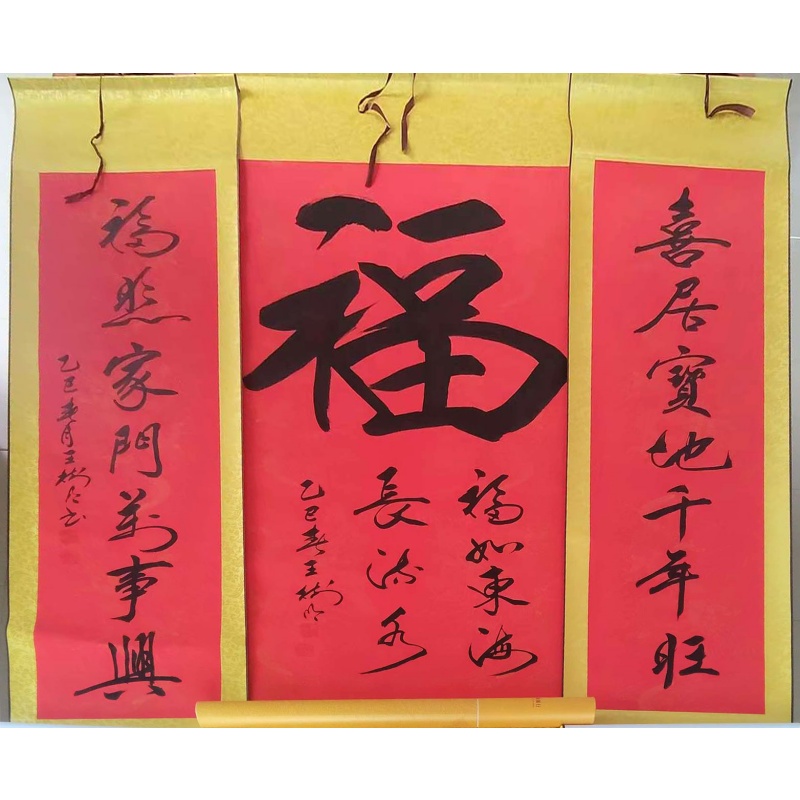 喜居寶地千年旺
福
福如東海
長流水
乙巳春王樹
福照家門萬事興
乙巳春月王樹